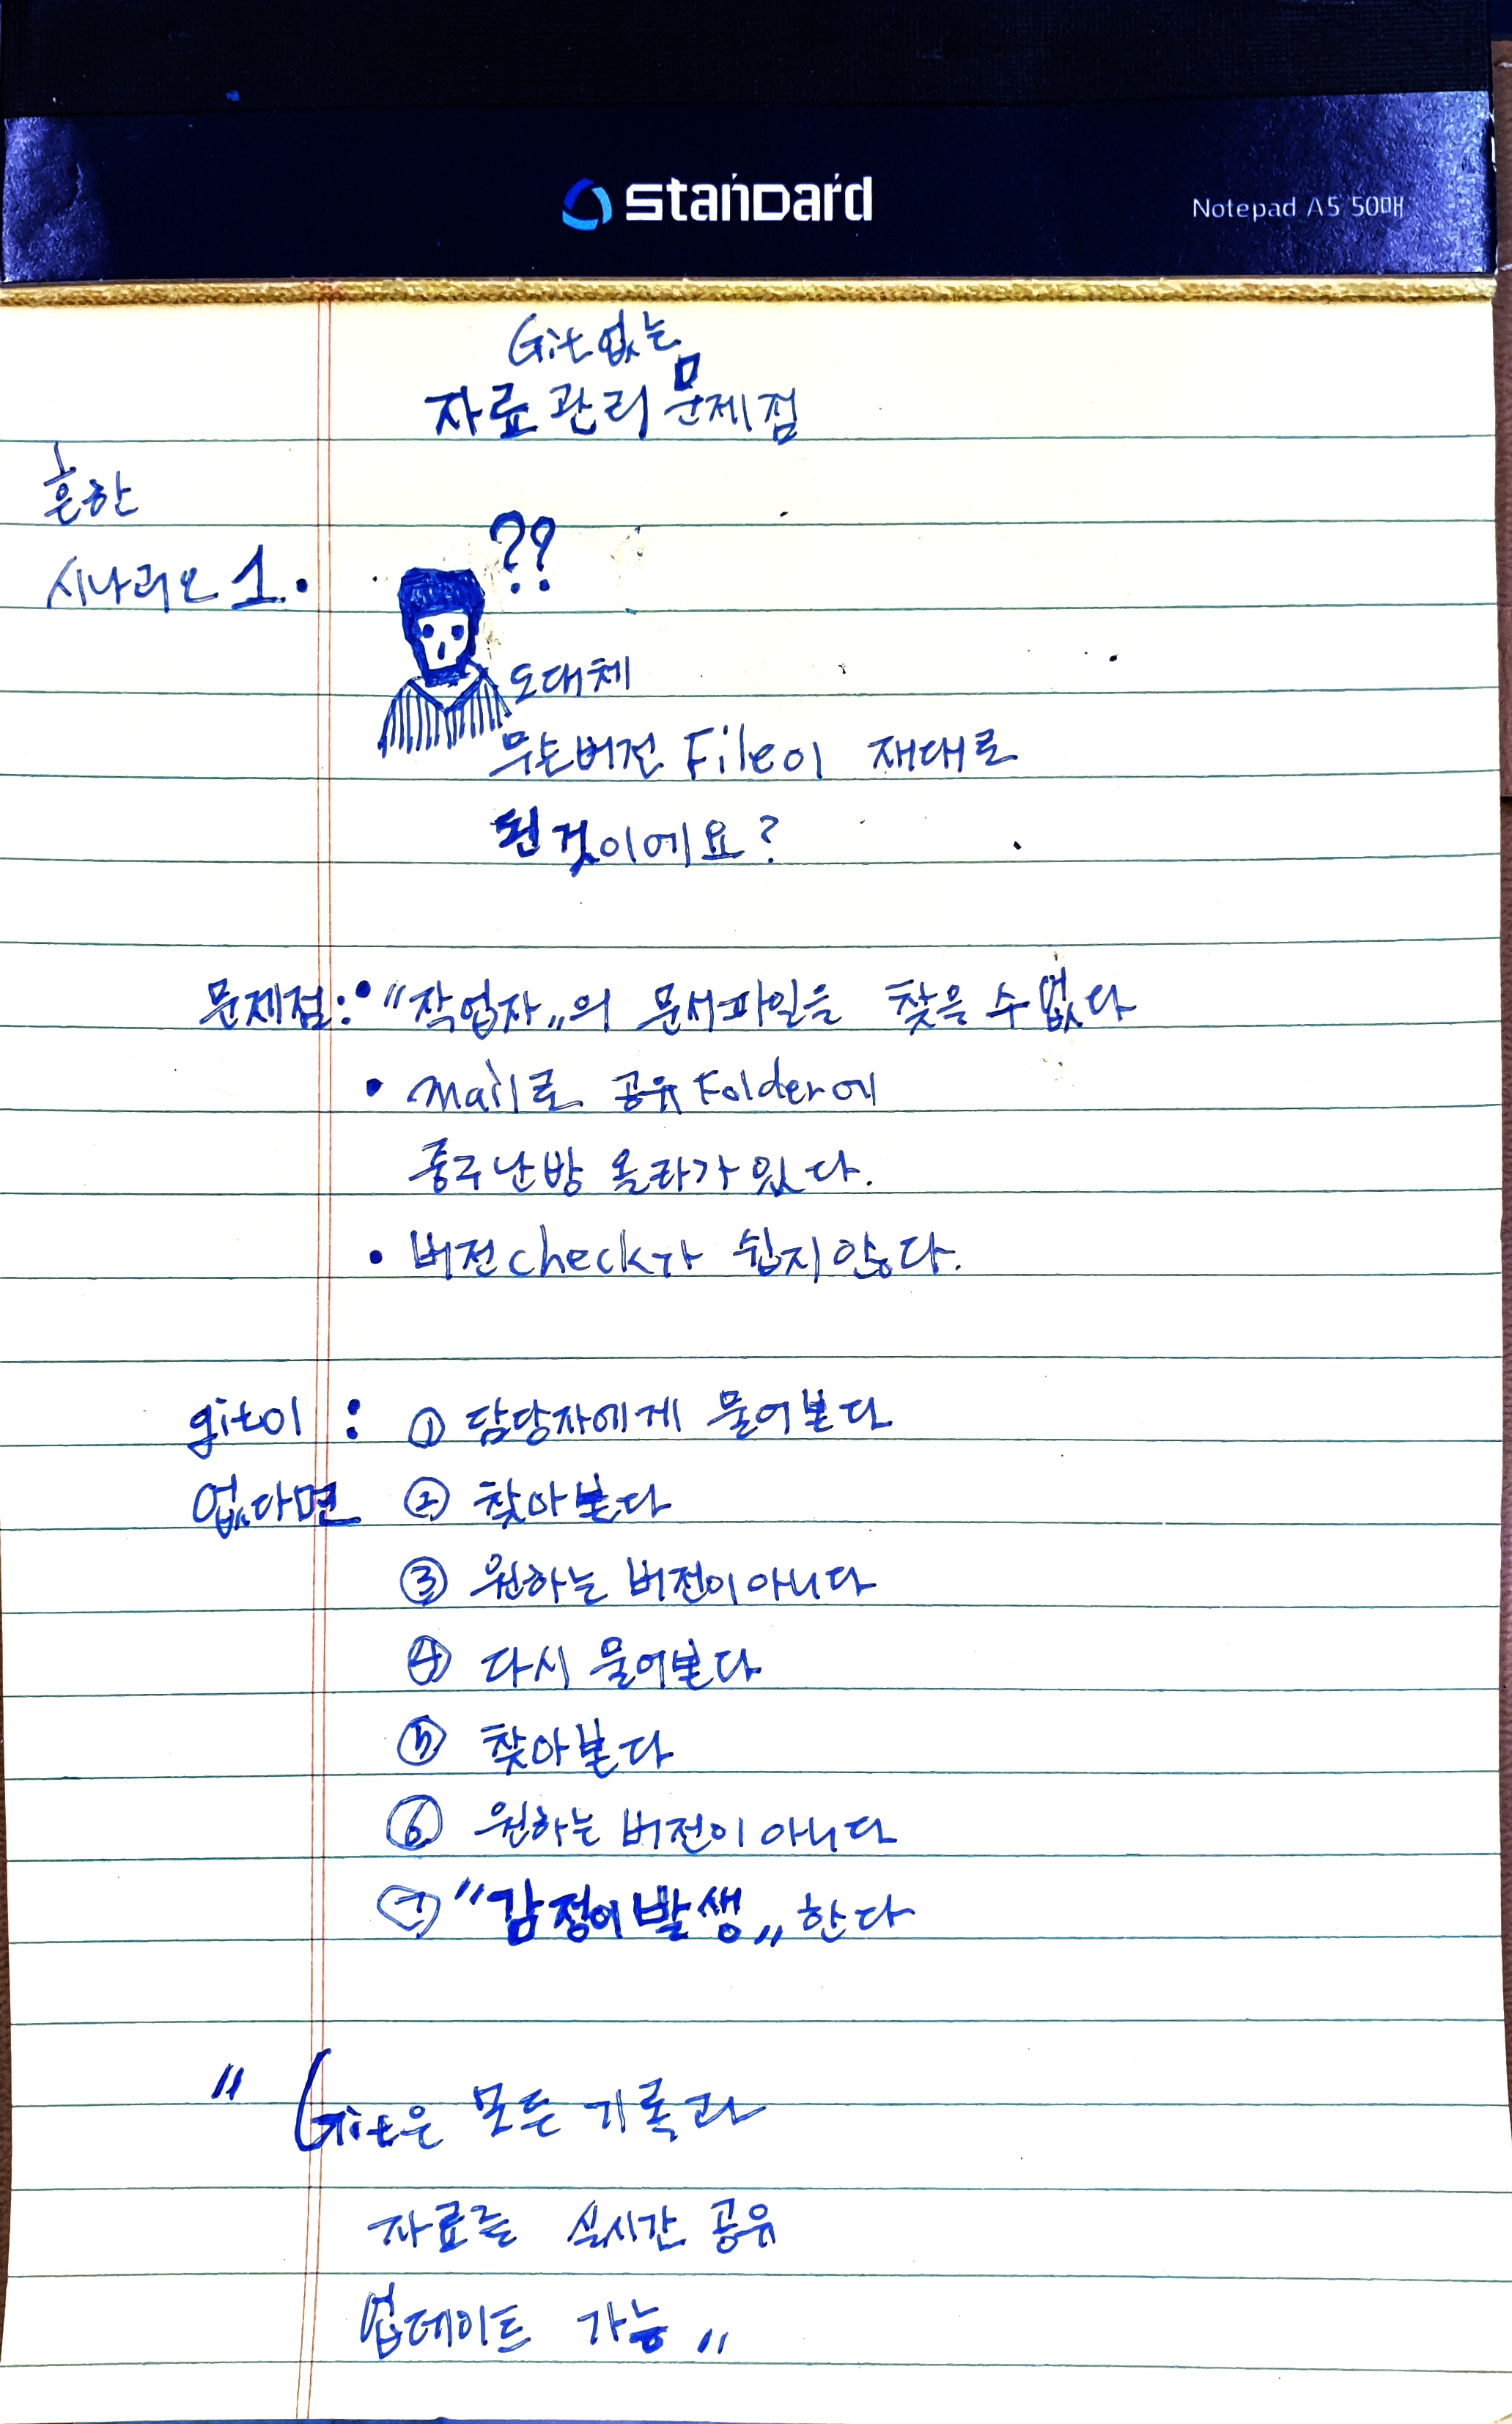 standard
Notepad A5 50매
Git 없는
자료관리 문제점
흔한
시나리오 1.
??
도대체
무슨버전 File이 재대로
된것이에요?
문제점: • "작업자"의 문서파일을 찾을 수 없다
• mail로 공유 Folder에
중구난방 올라가 있다.
• 버전check가 쉽지 않다.
git이 : ① 담당자에게 물어본다
없다면 ② 찾아본다
③ 원하는 버전이 아니다
④ 다시 물어본다
⑤ 찾아본다
⑥ 원하는 버전이 아니다
⑦ "감정이 발생" 한다
" Git은 모든 기록과
자료를 실시간 공유
업데이트 가능 "